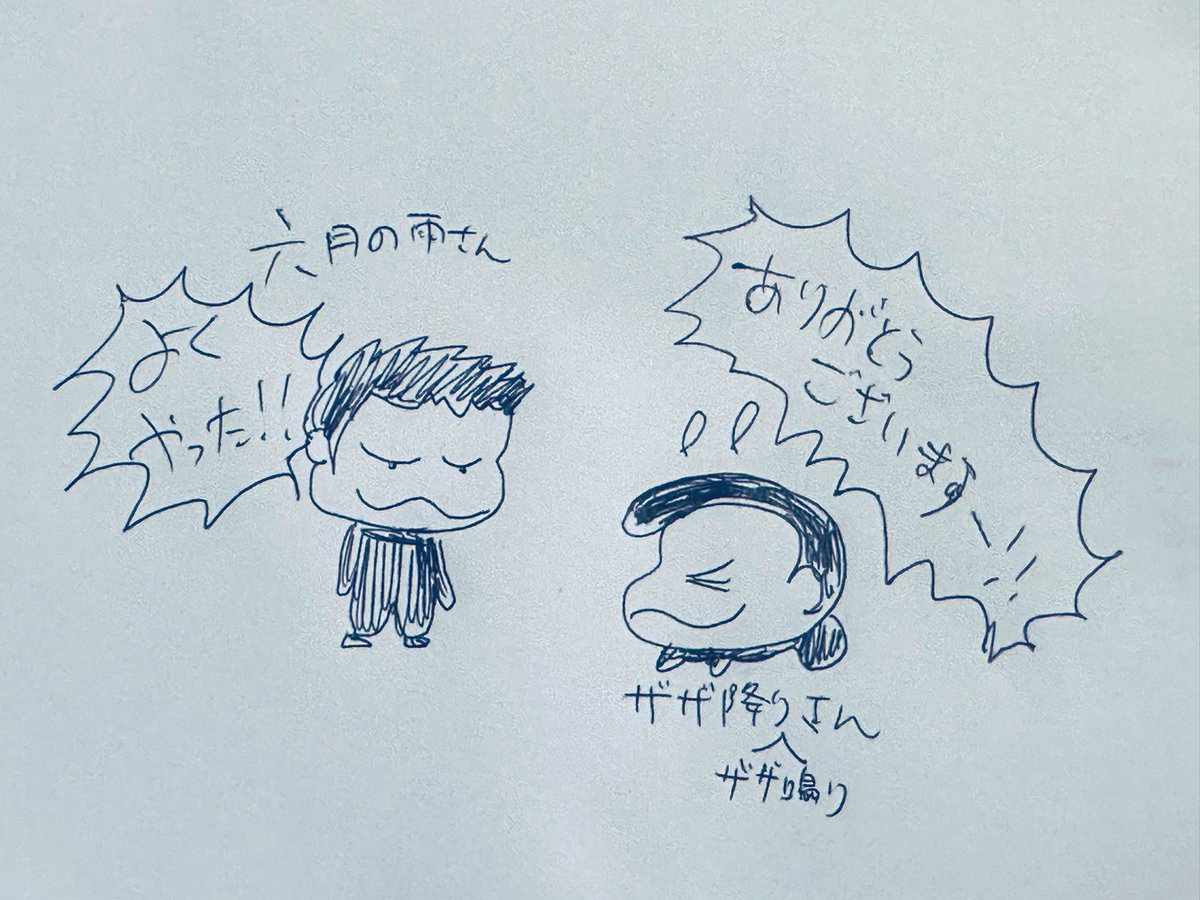 六月の雨さん
よく
やった!!
ありがとう
ございます
!!
ザザ降りさん
ザザ鳴り